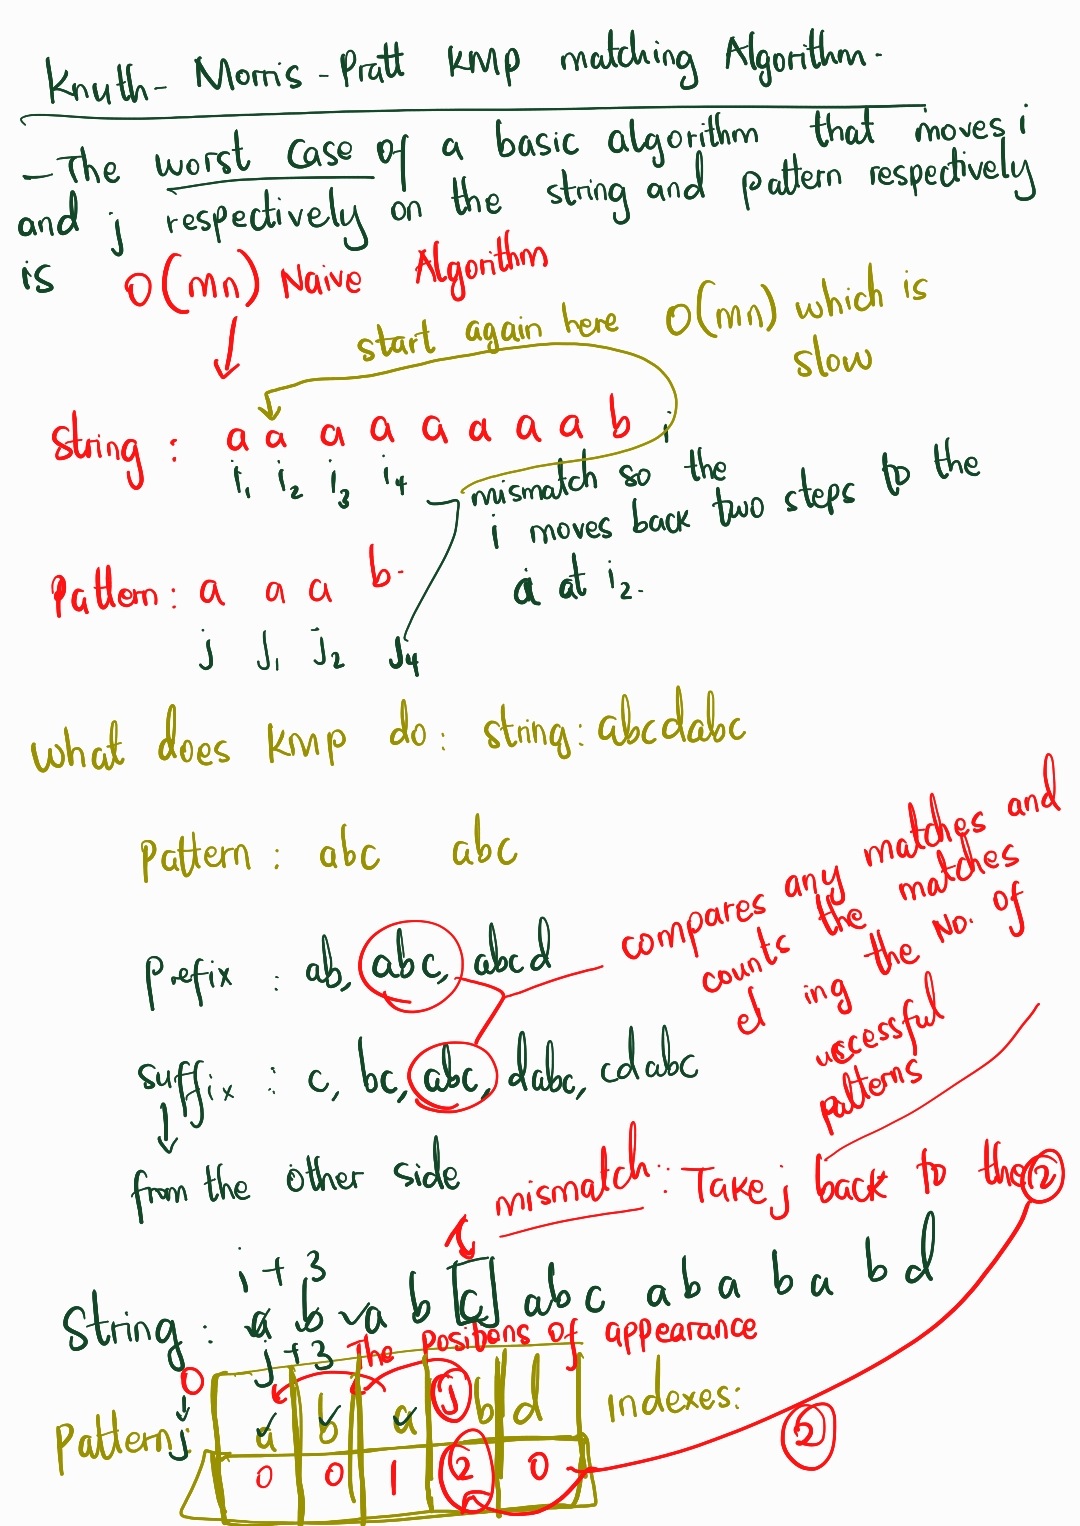 Knuth- Morris - Pratt KMP matching Algorithm-
- The worst case of a basic algorithm that moves i
and j respectively on the string and pattern respectively
is O(mn) Naive Algorithm
start again here O(mn) which is
slow
String : a a a a a a a a b i
i1 i2 i3 i4
mismatch so the
i moves back two steps to the
a at i2.
Pattern : a a a b
j j1 j2 j4
What does KMP do : string : abcdabc
Pattern : abc abc
Prefix : ab, abc, abcd
compares any matches and
counts the matches
el ing the No. of
uccessful
patterns
suffix : c, bc, abc, dabc, cdabc
from the other side
mismatch : Take j back to the 2
i + 3
String : a b a b c abc a b a b a b d
j + 3 The Positions of appearance
0
j
Pattern : a b a j b d Indexes:
0 0 1 2 0
2